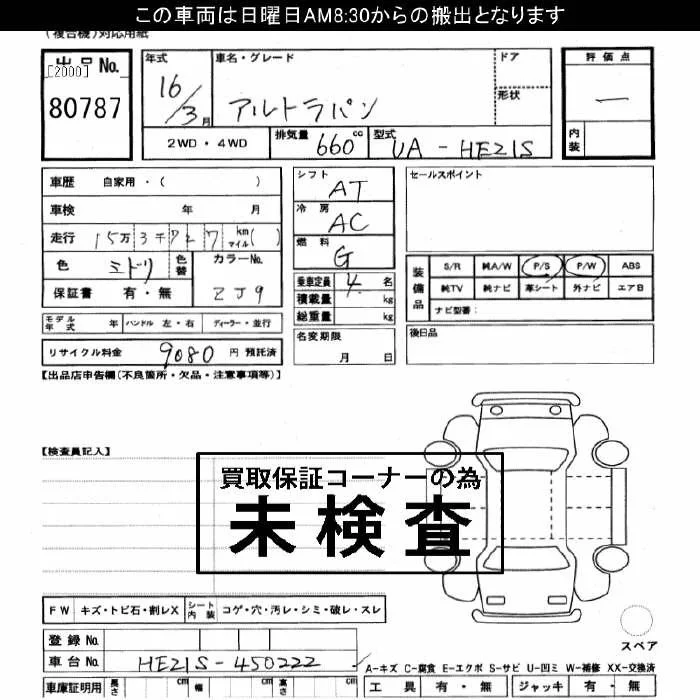 この車両は日曜日AM8:30からの搬出となります
(複合機)対応用紙
出品No.
[2000]
80787
年式
16/3月
車名・グレード
アルトラパン
ドア
形状
評価点
―
内装
2WD・4WD
排気量 660 cc
型式 UA-HE21S
車歴 自家用・( )
車検 年 月
走行 15万3千727 km マイル( )
色 ミドリ 色替 カラーNo.
保証書 有・無 ZJ9
シフト AT
冷房 AC
燃料 G
乗車定員 4 名
積載量 kg
総重量 kg
セールスポイント
装備品
S/R 純A/W P/S P/W ABS
純TV 純ナビ 革シート 外ナビ エアB
ナビ型番:
モデル年式 年 ハンドル 左・右 ディーラー・並行
リサイクル料金 9080 円 預託済
名変期限
月 日
後日品
【出品店申告欄(不良箇所・欠品・注意事項等)】
【検査員記入】
買取保証コーナーの為
未検査
FW キズ・トビ石・割レX シート内装 コゲ・穴・汚レ・シミ・破レ・スレ
登録No.
車台No. HE21S-450222
スペア
A-キズ C-腐食 E-エクボ S-サビ U-凹ミ W-補修 XX-交換済
車庫証明用 長さ cm 幅 cm 高さ cm
工具 有・無 ジャッキ 有・無